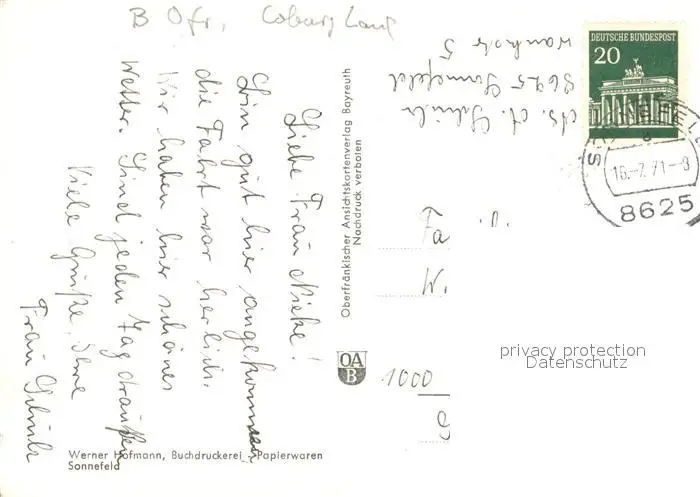 B Ofr. Coburg Land
Liebe Frau Nieke!
Bin gut hier angekommen
die Fahrt war herlich.
Wir haben hier schönes
Wetter. Sind jeden Tag draußen
Viele Grüße, Ihre
Frau Schulz
8625 Sonnefeld
DEUTSCHE BUNDESPOST
20
16.-7.71-8
8625
Fa
W.
1000
privacy protection
Datenschutz
Oberfränkischer Ansichtskartenverlag Bayreuth
Nachdruck verboten
OA
B
Werner Hofmann, Buchdruckerei - Papierwaren
Sonnefeld